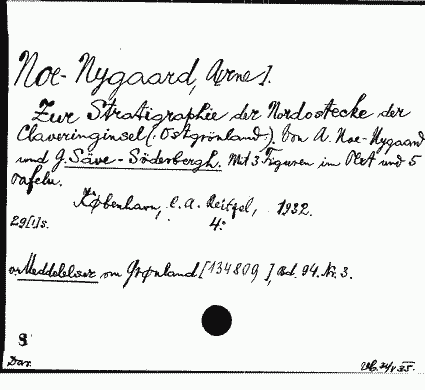 Noe-Nygaard, Arne].
Zur Stratigraphie der Nordostecke der
Claveringinsel (Ostgrönland). Von A. Noe-Nygaard
und G. Säve-Söderbergh. Mit 3 Figuren im Text und 5
Tafeln.
København, C. A. Reitzel, 1932.
29[1]s. 4:
Meddelelser om Grønland [134809], Bd. 94. Nr. 3.
8
Dav.